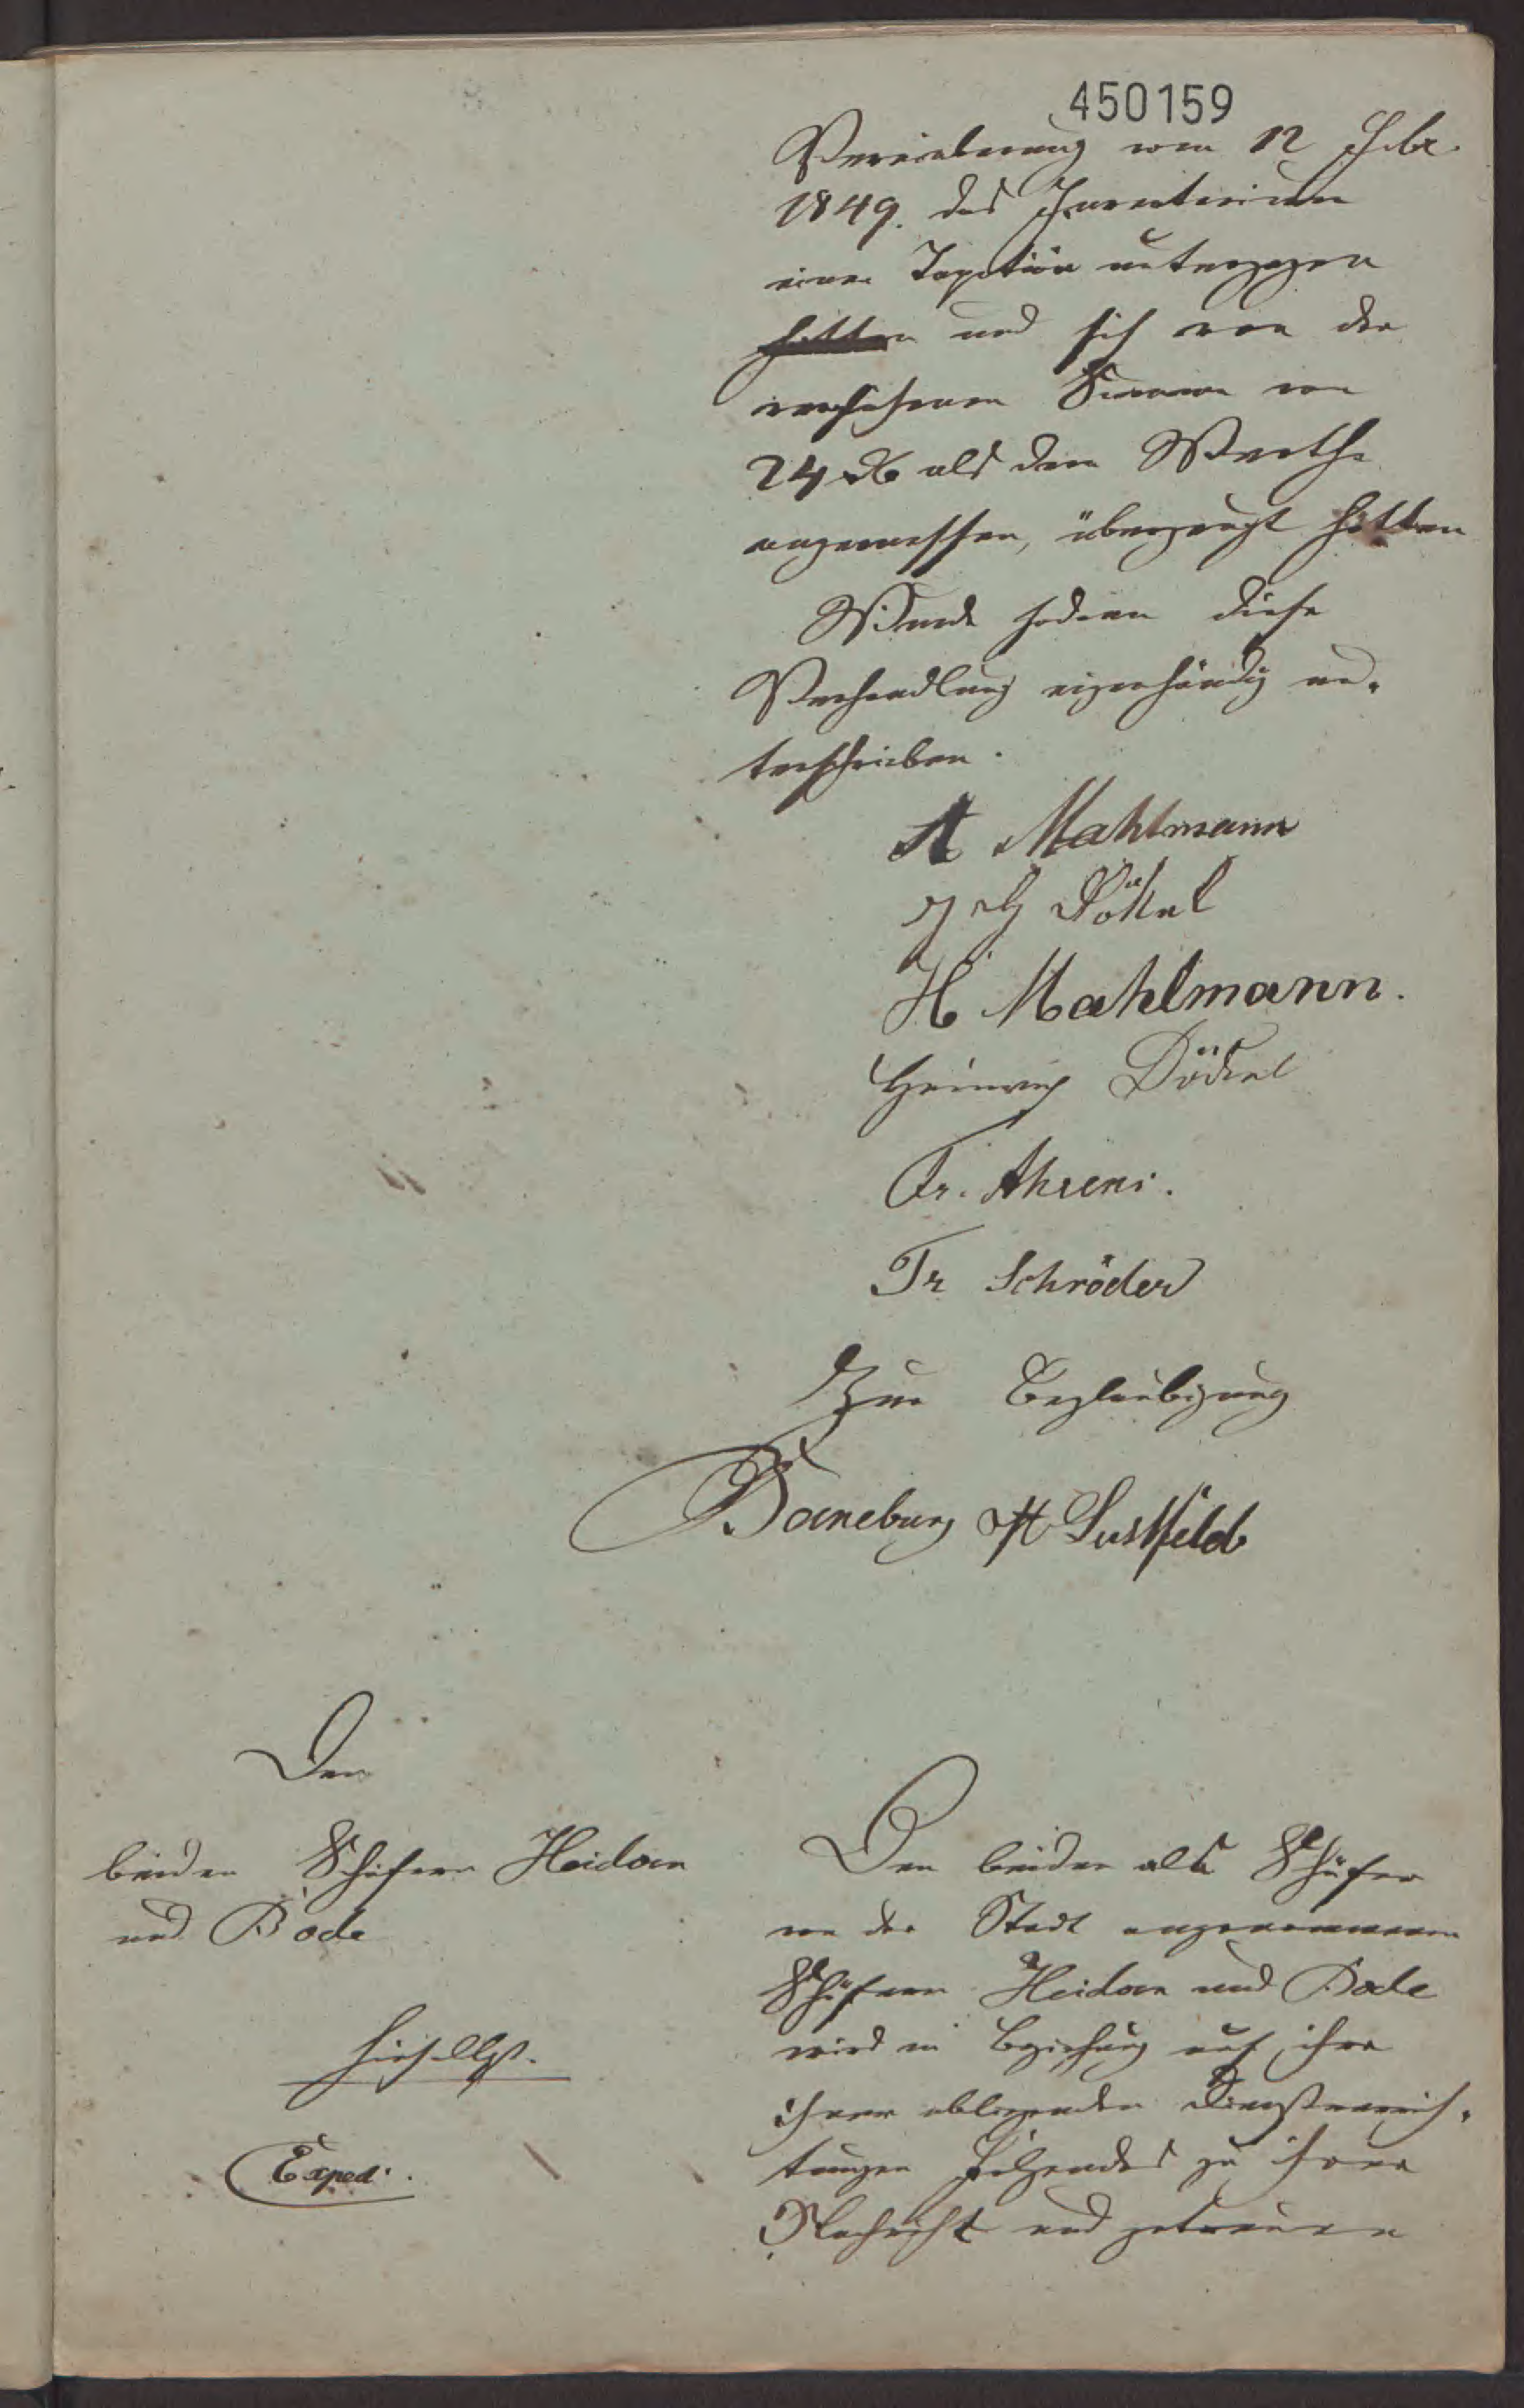 450159
Vereinbarung vom 12 Febr.
1849. das Inventarium
einer Taxation unterzogen
hatten und sich von der
versehenen Summe von
24 rthlr als dem Werthe
angemessen, überzeugt hätten
Wurde sodann diese
Verhandlung eigenhändig un-
terschrieben.
A Mahlmann
J H Döckel
H Mahlmann.
Heinrich Döckel
Fr. Ahrens.
Fr Schröder
Zur Beglaubigung
Baneburg H Lustfeld
Den
beiden Schäfern Heidorn
und Bode
hieselbst.
Exped.
Den beiden als Schäfer
von der Stadt angenommenen
Schäfern Heidorn und Bode
wird in Beziehung auf ihre
ihnen obliegenden Dienstverrich-
tungen Folgendes zu ihrer
Nachricht und getreuen